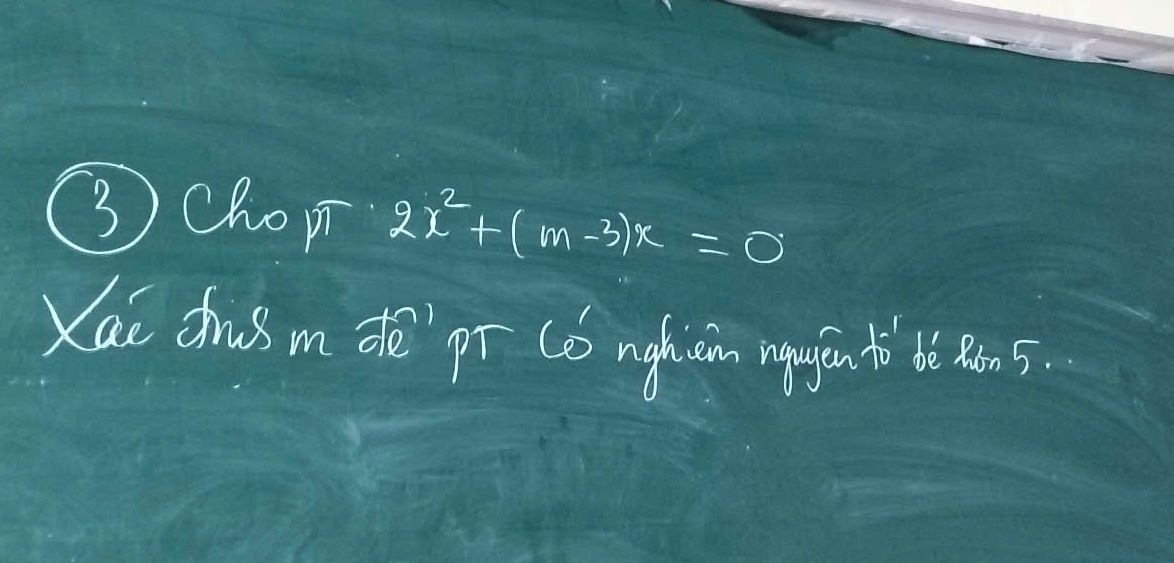 ③ Cho pT 2x² + (m-3)x = 0
Xác định m để pT có nghiệm nguyên tố bé hơn 5.